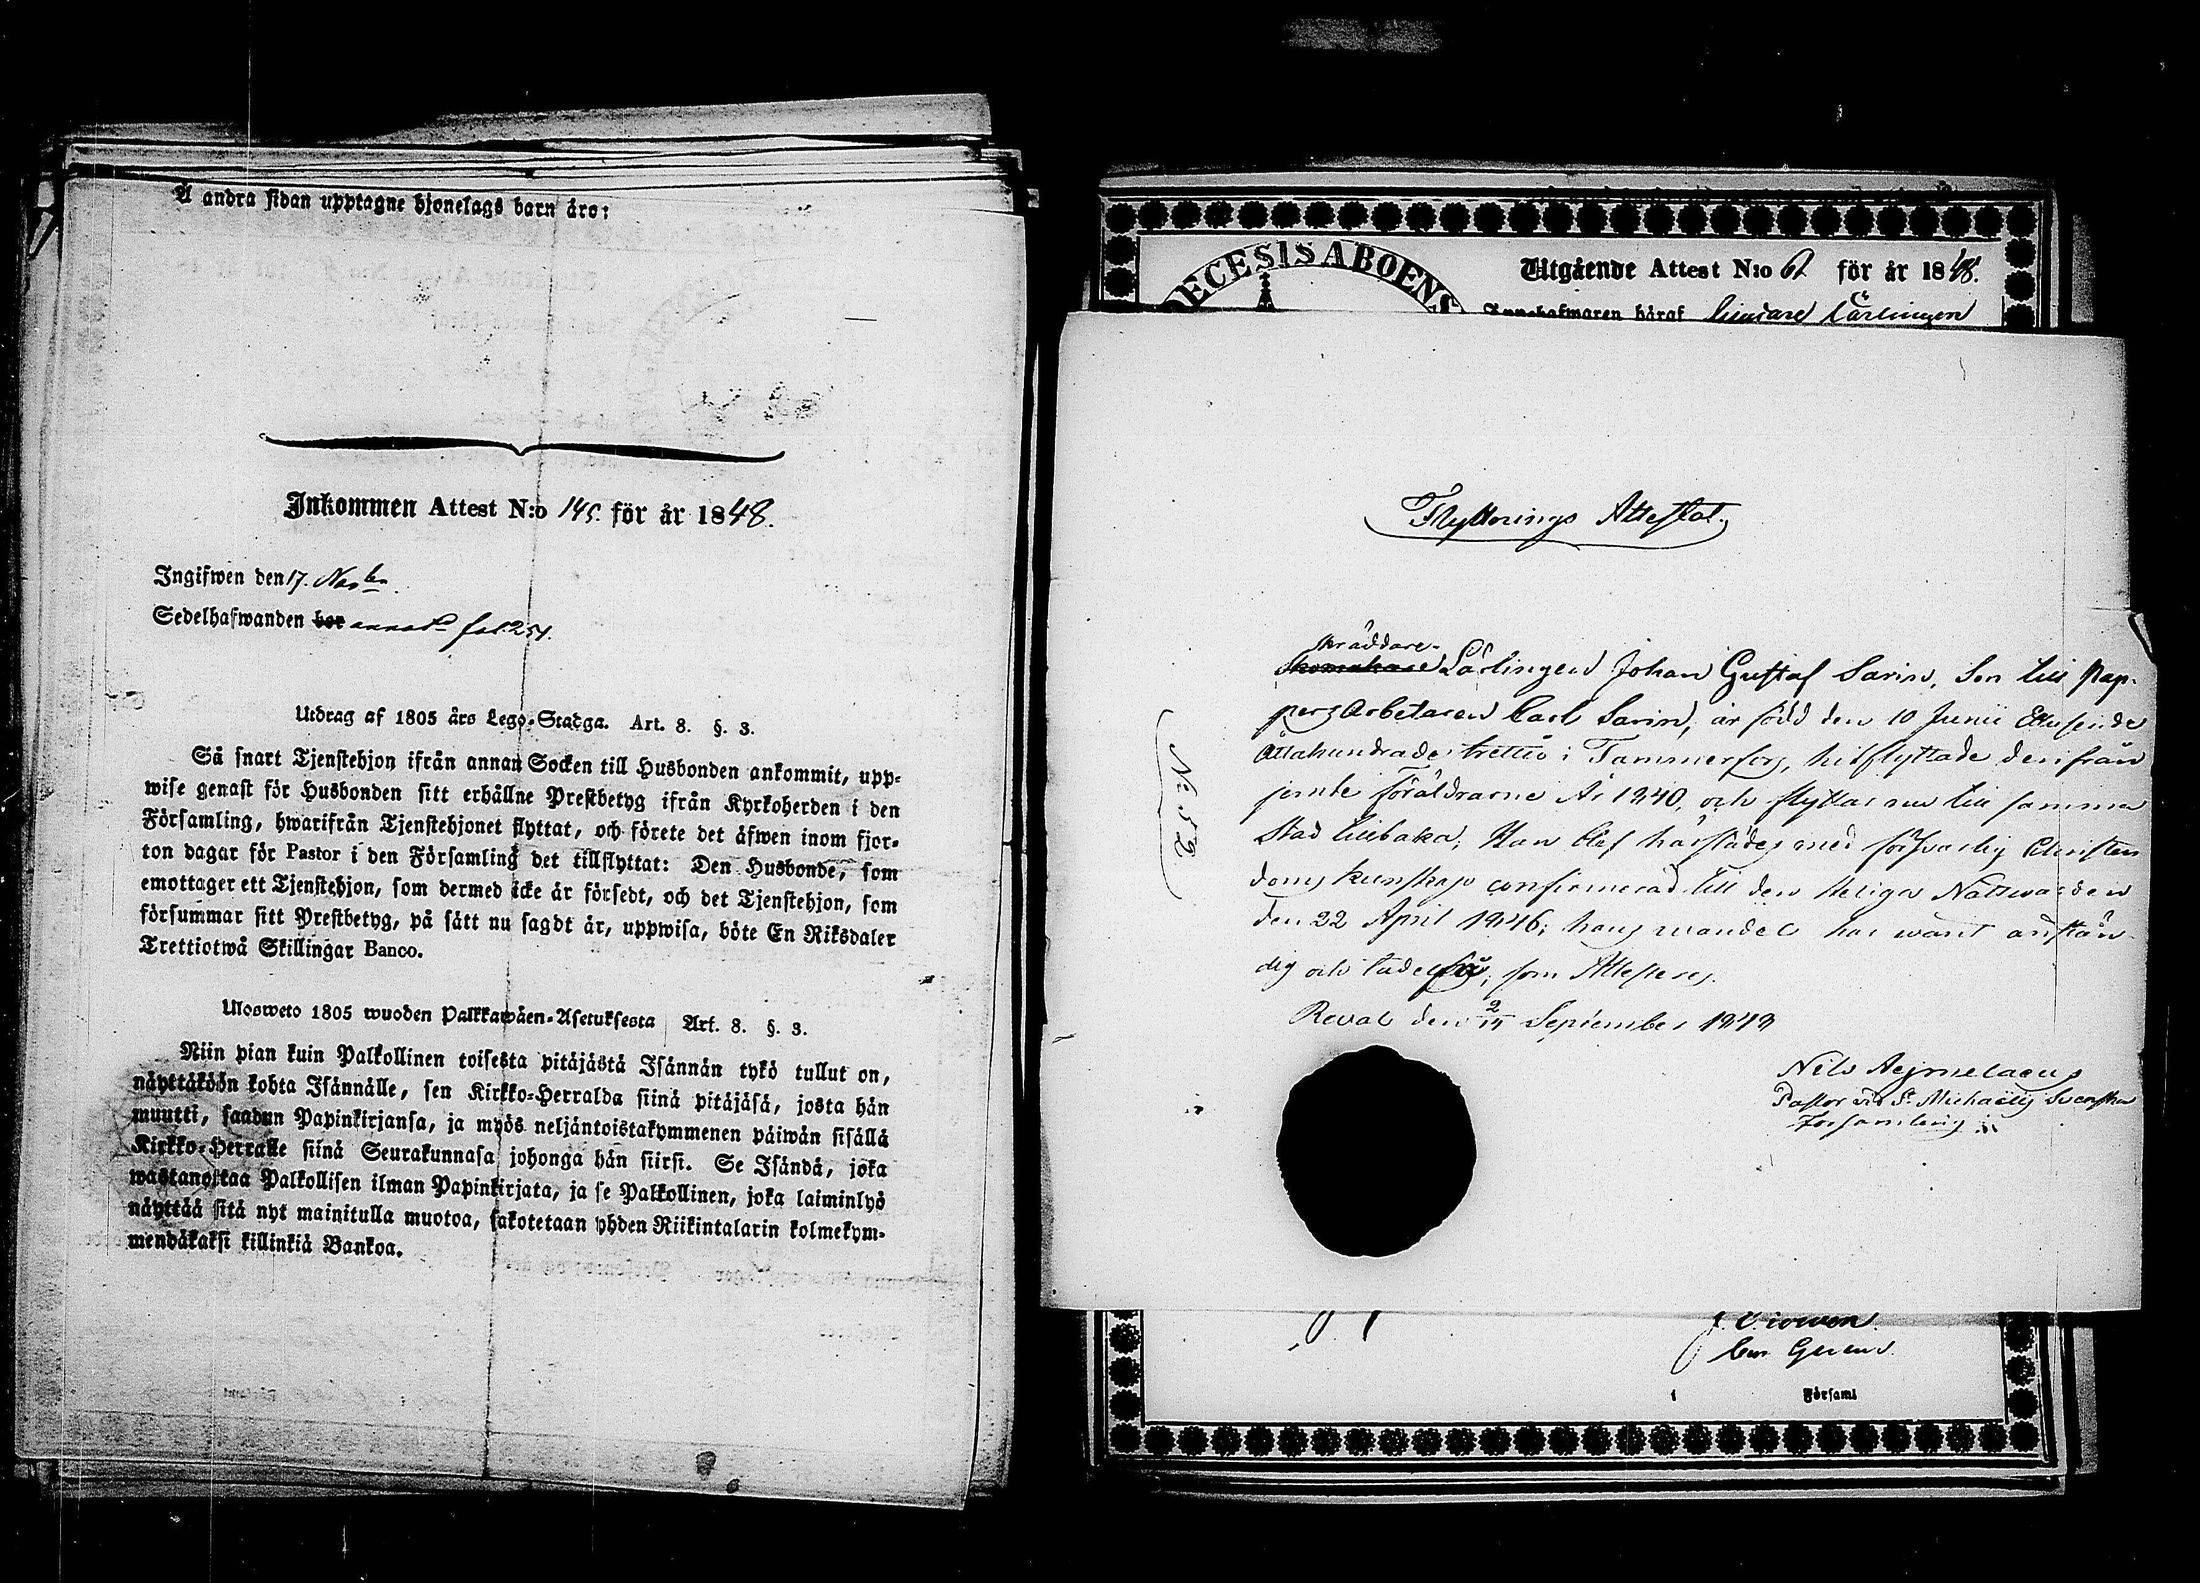 Å andra sidan upptagne hjonelags barn äro:
Inkommen Attest N:o 145. för år 1848.
Ingifwen den 17. Novbr
Sedelhafwanden bor annot. fol. 251.
Utdrag af 1805 års Lego-Stadga. Art. 8. §. 3.
Så snart Tjenstehjon ifrån annan Socken till Husbonden ankommit, upp-
wise genast för Husbonden sitt erhållne Prestbetyg ifrån Kyrkoherden i den
Församling, hwarifrån Tjenstehjonet flyttat, och förete det äfwen inom fjor-
ton dagar för Pastor i den Församling det tillflyttat: Den Husbonde, som
emottager ett Tjenstehjon, som dermed icke är försedt, och det Tjenstehjon, som
försummar sitt Prestbetyg, på sätt nu sagdt är, uppwisa, böte En Riksdaler
Trettiotwå Skillingar Banco.
Ulosweto 1805 wuoden Palkkawäen-Asetuksesta Art. 8. §. 3.
Niin pian kuin Palkollinen toisesta pitäjästä Isännän tykö tullut on,
näyttäköön kohta Isännälle, sen Kirkko-Herralda siinä pitäjäsä, josta hän
muutti, saadun Papinkirjansa, ja myös neljäntoistakymmenen päiwän sisällä
Kirkko-Herralle siinä Seurakunnasa johonga hän siirsi. Se Isändä, joka
wastanottaa Palkollisen ilman Papinkirjata, ja se Palkollinen, joka laiminlyö
näyttää sitä nyt mainitulla muotoa, sakotetaan yhden Riikintalarin kolmekym-
mendäkaksi killinkiä Bankoa.
DECESIS ABOENS
Utgående Attest N:o 61 för år 1848.
Innehafwaren häraf Lärlingen
Flyttnings Attestat.
N: 52
skräddare-
Skomakare Lärlingen Johan Gustaf Sarin, Son till Pap-
pers Arbetaren Carl Sarin, är född den 10 Junii Ettusende
Åttahundrade trettio i Tammerfors, hitflyttade derifrån
jemte föräldrarne År 1840, och flyttar nu till samma
Stad tillbaka; Han blef härstädes med försvarlig Christen
doms kunskap confirmerad till den Heliga Nattwarden
den 22 April 1846; hans wandel har warit anstän
dig och tadelfri, som Attesteres.
Reval den 2/14 September 1848
Nils Aejmelaeus
Pastor vid St. Michaelis Svenska
Församling
Församl